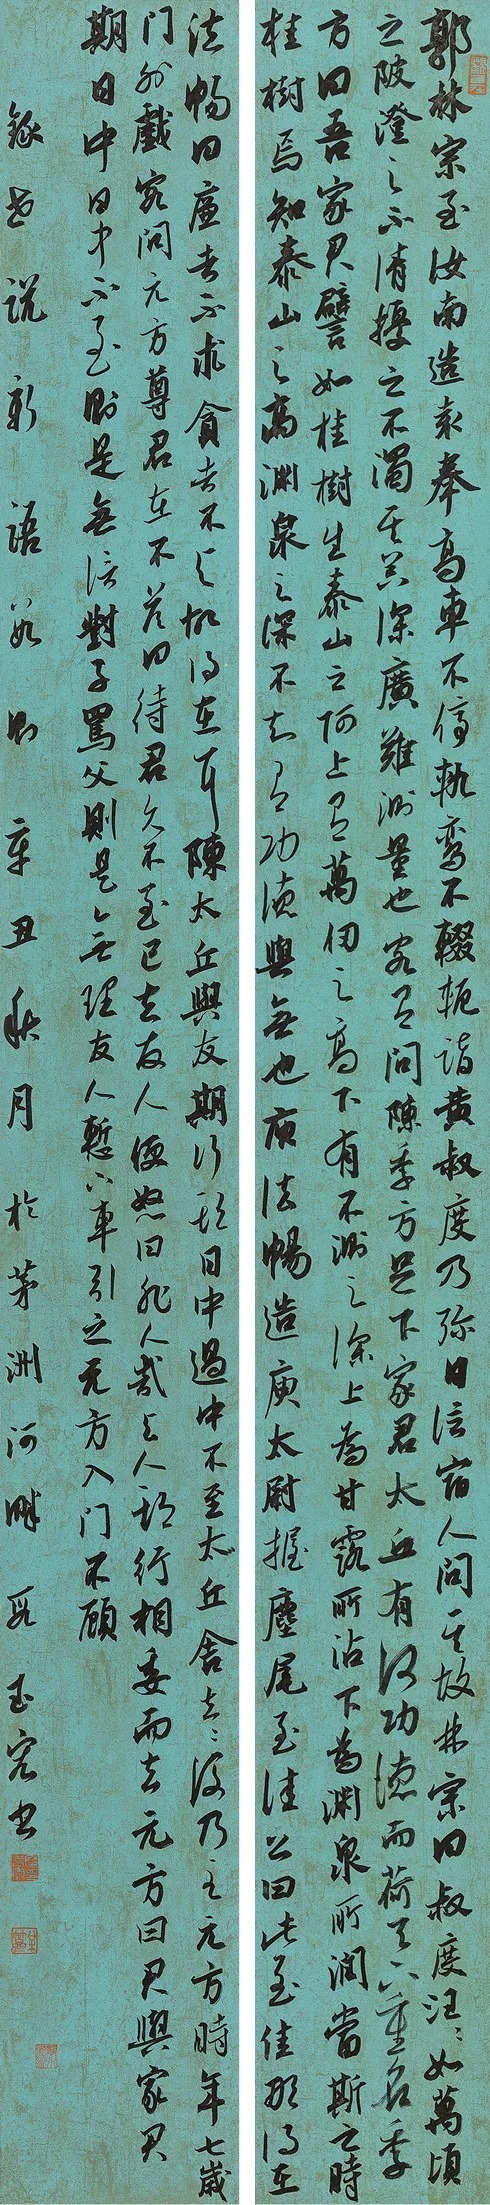 郭林宗至汝南造袁奉高車不停軌鸞不輟軛詣黄叔度乃弥日信宿人問其故林宗曰叔度汪〻如萬頃
之陂澄之不清擾之不濁其器深廣難測量也客有問陳季方足下家君太丘有何功德而荷天下重名季
方曰吾家君譬如桂樹生泰山之阿上有萬仞之高下有不測之深上為甘露所沾下為渊泉所潤當斯之時
桂樹焉知泰山之高渊泉之深不知有功德與無也庾法暢造庾太尉握麈尾至佳公曰此至佳那得在
法暢曰廉者不求貪者不与故得在耳陳太丘與友期行期日中過中不至太丘舍去〻後乃至元方時年七歲
门外戲客问元方尊君在不答曰待君久不至已去友人便怒曰非人哉与人期行相委而去元方曰君與家君
期日中日中不至則是無信對子罵父則是無理友人慙下車引之元方入门不顧
錄世說新語数則辛丑秋月於茅洲河畔